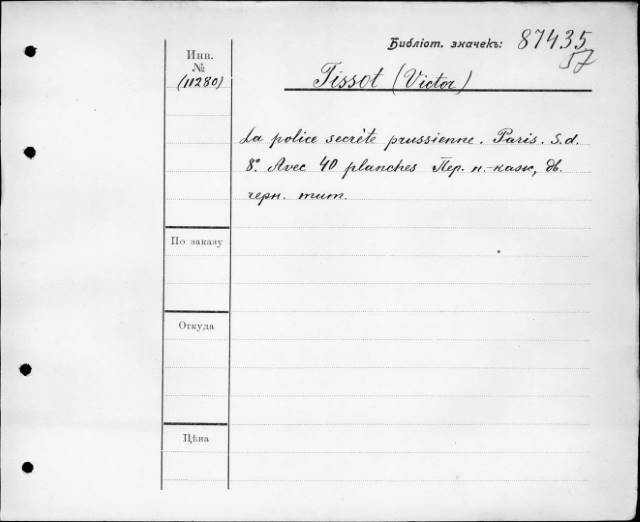 Библіот. значекъ: 87435
57
Инв.
№
(11280)
Tissot (Victor)
La police secrète prussienne. Paris. S.d.
8º. Avec 40 planches Пер. п.-каж, дв.
черн. тит.
По заказу
Откуда
Цѣна